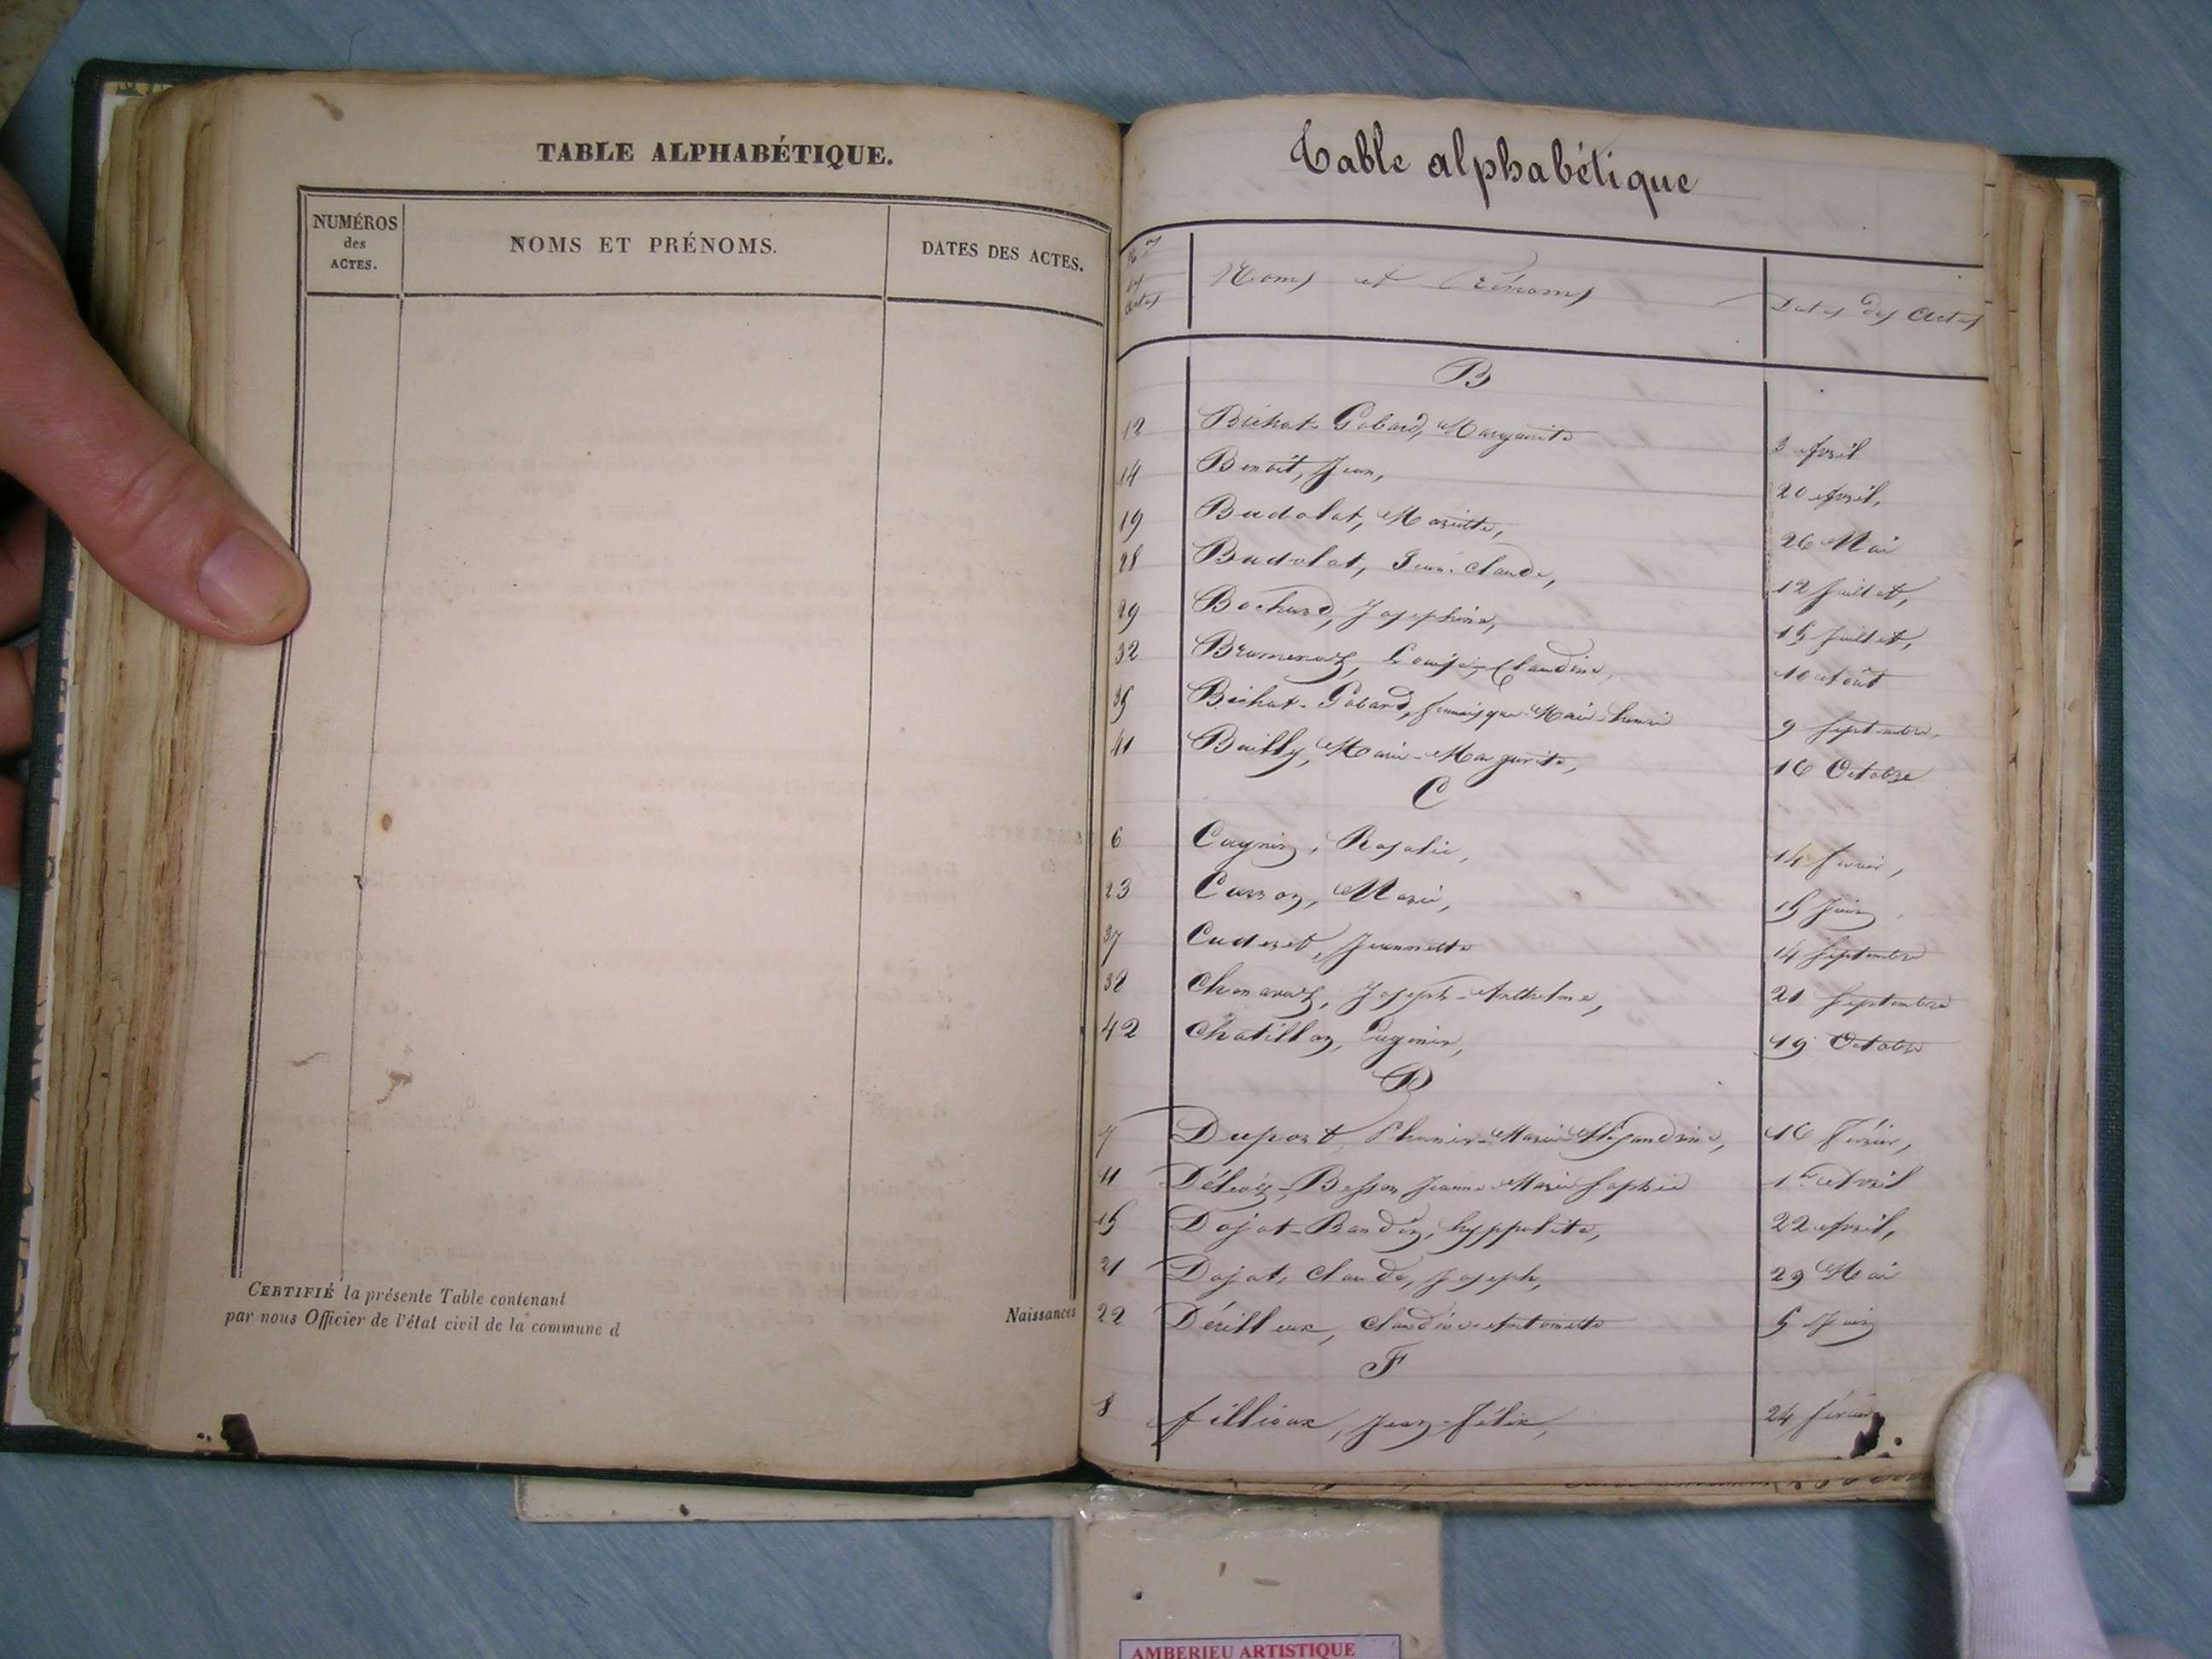 TABLE ALPHABÉTIQUE.
NUMÉROS
des
ACTES.
NOMS ET PRÉNOMS.
DATES DES ACTES.
CERTIFIÉ la présente Table contenant
Naissances
par nous Officier de l'état civil de la commune d
Table alphabétique
Nos des Actes Noms et Prénoms Dates des Actes
B
12 Bichat-Gobard, Marguerite 3 Avril
14 Benoît, Jean, 20 Avril,
19 Badolat, Mariette, 26 Mai
28 Badolat, Jean-Claude, 12 Juillet,
29 Bochard, Josephine, 15 Juillet,
32 Louise-Claudine, 10 Août
35 Bichat-Gobard, Marie 9 Septembre,
41 Bailly, Marie-Marguerite, 16 Octobre
C
6 Cagnin, Rosalie, 14 février,
23 Curron, Marie, 15 Juin,
37 Jeannette 14 Septembre
38 Joseph-Anthelme, 21 Septembre
42 Chatillon, 19 Octobre
D
7 Duport Marie 16 Février,
11 Besson Jeanne-Marie Sophie 1er Avril
15 Dojat-Bandin, hyppolite, 22 Avril,
21 Dojat, Claude, Joseph, 29 Mai
22 Dérilleux, Claudine-Antoinette 5 Juin
F
8 fillioux, Jean-Félix, 24 février
AMBERIEU ARTISTIQUE